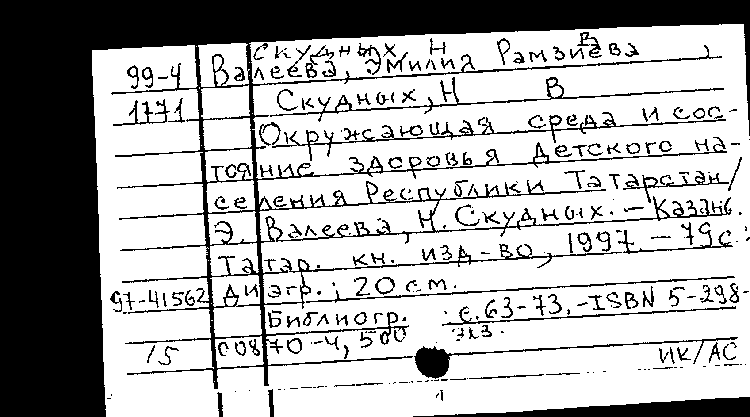 Скудных, Н В
99-4 Валеева, Эмилия Рамзиева,
1771 Скудных, Н В
Окружающая среда и сос-
тояние здоровья детского на-
селения Республики Татарстан/
Э. Валеева, Н. Скудных. – Казань.
Татар. кн. изд-во, 1997. – 79 с.:
97-41562 диагр.; 20 см.
Библиогр.: с. 63-73. – ISBN 5-298-
15 00870-4, 500 экз.
ИК/АС